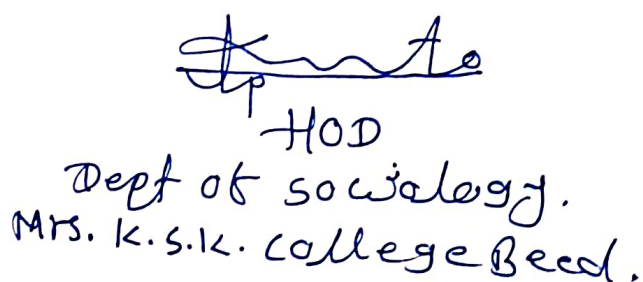 HOD
Dept of sociology.
Mrs. K.S.K. College Beed.